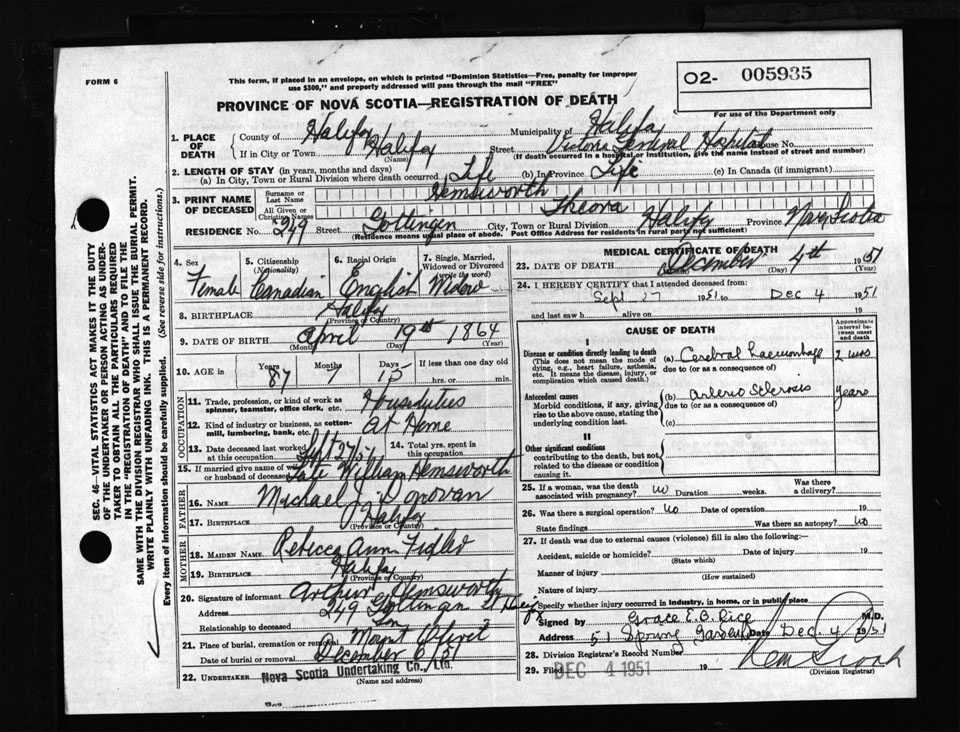 FORM 6
This form, if placed in an envelope, on which is printed "Dominion Statistics—Free, penalty for improper
use $300," and properly addressed will pass through the mail "FREE"
O2- 005935
For use of the Department only
PROVINCE OF NOVA SCOTIA—REGISTRATION OF DEATH
1. PLACE OF DEATH
County of Halifax Municipality of Halifax
If in City or Town Halifax (Name) Street Victoria General Hospital House No.
(If death occurred in a hospital or institution, give the name instead of street and number)
2. LENGTH OF STAY (in years, months and days)
(a) In City, Town or Rural Division where death occurred Life (b) In Province Life (c) In Canada (if immigrant)
3. PRINT NAME OF DECEASED
Surname or Last Name Hemsworth
All Given or Christian Names Theora
RESIDENCE No. 249 Street Gottingen City, Town or Rural Division Halifax Province Nova Scotia
(Residence means usual place of abode. Post Office Address for residents in rural parts not sufficient)
4. Sex Female
5. Citizenship (Nationality) Canadian
6. Racial Origin English
7. Single, Married, Widowed or Divorced (write the word) Widow
8. BIRTHPLACE Halifax
(Province or Country)
9. DATE OF BIRTH April 19th 1864
(Month) (Day) (Year)
10. AGE in Years 87 Months 7 Days 15 If less than one day old
hrs. or min.
OCCUPATION
11. Trade, profession, or kind of work as
spinner, teamster, office clerk, etc. Housduties
12. Kind of industry or business, as cotton-
mill, lumbering, bank, etc. At Home
13. Date deceased last worked at this occupation Sept 27/51
14. Total yrs. spent in this occupation
15. If married give name of wife or husband of deceased Late William Hemsworth
FATHER
16. NAME Michael J. Donovan
17. BIRTHPLACE Halifax
(Province or Country)
MOTHER
18. MAIDEN NAME Rebecca Ann Fidler
19. BIRTHPLACE Halifax
(Province or Country)
20. Signature of informant Arthur Hemsworth
Address 249 Gottingen St
Relationship to deceased Son
21. Place of burial, cremation or removal Mount Olivet
Date of burial or removal December 6/51
22. UNDERTAKER Nova Scotia Undertaking Co., Ltd.
(Name and address)
MEDICAL CERTIFICATE OF DEATH
23. DATE OF DEATH December 4th 1951
(Day) (Year)
24. I HEREBY CERTIFY that I attended deceased from:
Sept 27 1951 to Dec 4 1951
and last saw h alive on 19
CAUSE OF DEATH
Approximate interval between onset and death
I
Disease or condition directly leading to death
(This does not mean the mode of
dying, e.g., heart failure, asthenia,
etc. It means the disease, injury, or
complication which caused death.)
(a) Cerebral haemorrhage 2 mos
due to (or as a consequence of)
Antecedent causes
Morbid conditions, if any, giving
rise to the above cause, stating the
underlying condition last.
(b) Arterio Sclerosis years
due to (or as a consequence of)
(c)
II
Other significant conditions
contributing to the death, but not
related to the disease or condition
causing it.
25. If a woman, was the death associated with pregnancy? No Duration weeks. Was there a delivery?
26. Was there a surgical operation? No Date of operation 19
State findings Was there an autopsy? No
27. If death was due to external causes (violence) fill in also the following:
Accident, suicide or homicide? Date of injury 19
(State which)
Manner of injury
(How sustained)
Nature of injury
Specify whether injury occurred in industry, in home, or in public place
Signed by Grace E. B. Rice M.D.
Address 51 Spring Garden Date Dec. 4 1951
28. Division Registrar's Record Number
29. Filed DEC 4 1951 19
(Division Registrar)
SEC. 46—VITAL STATISTICS ACT MAKES IT THE DUTY
OF THE UNDERTAKER OR PERSON ACTING AS UNDER-
TAKER TO OBTAIN ALL THE PARTICULARS REQUIRED
IN THE "REGISTRATION OF DEATH" AND TO FILE THE
SAME WITH THE DIVISION REGISTRAR WHO SHALL ISSUE THE BURIAL PERMIT.
WRITE PLAINLY WITH UNFADING INK. THIS IS A PERMANENT RECORD.
Every item of information should be carefully supplied. (See reverse side for instructions.)